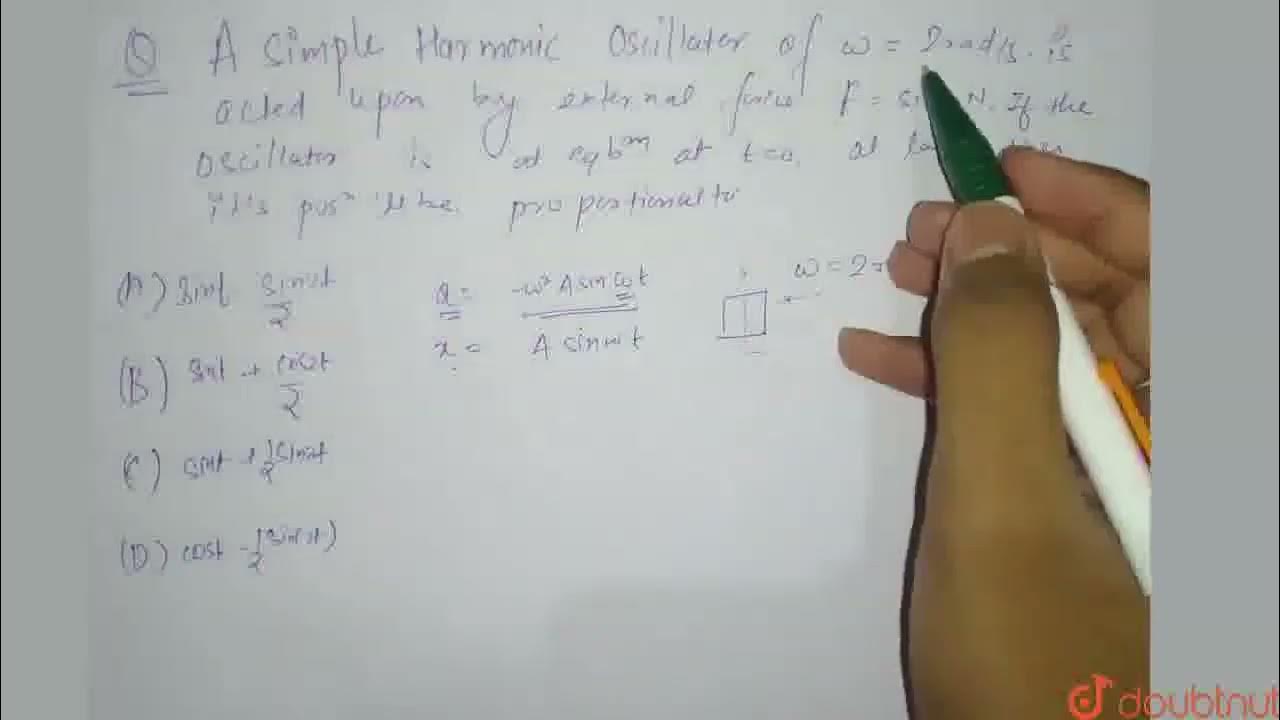 Q A Simple Harmonic Oscillator of ω = 2rad/s. is
acted upon by external force F = N. If the
Oscillator is at eqbᵐ at t=0, at
it's posⁿ 'll be proportional to
(A) sint sin2t/2
(B) sint + cos2t/2
(C) sint + 1/2 sin2t
(D) cost - 1/2(sin2t)
a = -ω² A sin ωt
x = A sin ωt
ω = 2
doubtnut